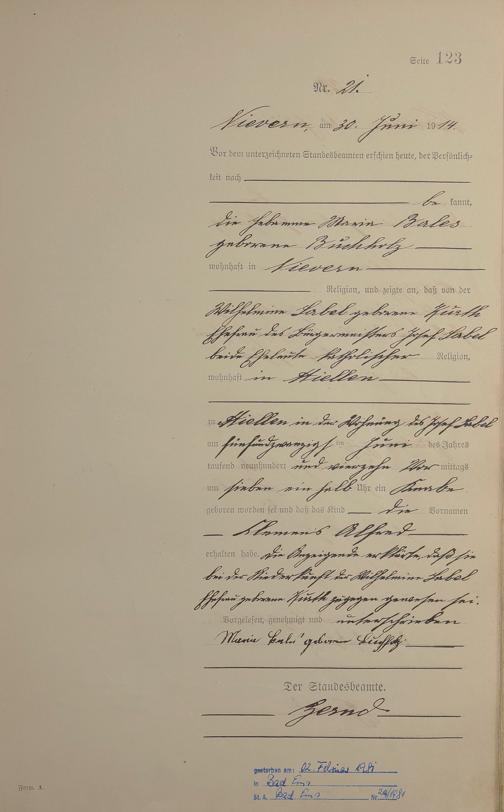 Seite 123
Nr. 21.
Nievern, am 30. Juni 1914.
Vor dem unterzeichneten Standesbeamten erschien heute, der Persönlich-
keit nach
be kannt,
die Hebamme Maria Bales
geborene Buchholz
wohnhaft in Nievern
Religion, und zeigte an, daß von der
Wilhelmine Labal geborene Kurth
Ehefrau des Bürgermeisters Josef Labal
beide Eheleute katholischer Religion,
wohnhaft in
zu in der Wohnung des Josef Labal
am fünfundzwanzigsten Juni des Jahres
tausend neunhundert und vierzehn Vor mittags
um sieben ein halb Uhr ein Knabe
geboren worden sei und daß das Kind die Vornamen
Clemens Alfred
erhalten habe. Die Anzeigende erklärte, daß sie
bei der Niederkunft der Wilhelmine Labal
Ehefrau geborene Kurth zugegen gewesen sei.
Vorgelesen, genehmigt und unterschrieben
Maria Bales geborene Buchholz
Der Standesbeamte.
gestorben am: 02. Februar 1981
in Bad Ems
St. A. Bad Ems Nr.
Form. A.